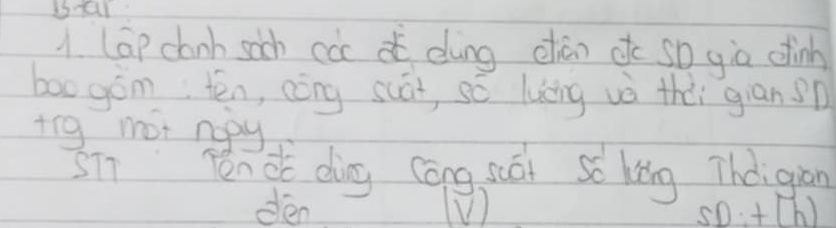 Bài
1. Lập danh sách các đồ dùng điện đc SD gia đình
bao gồm: tên, công suất, số lượng và thời gian SD
trg một ngày
STT Tên đồ dùng Công suất Số lượng Thời gian
điện (V) SD: t (h)